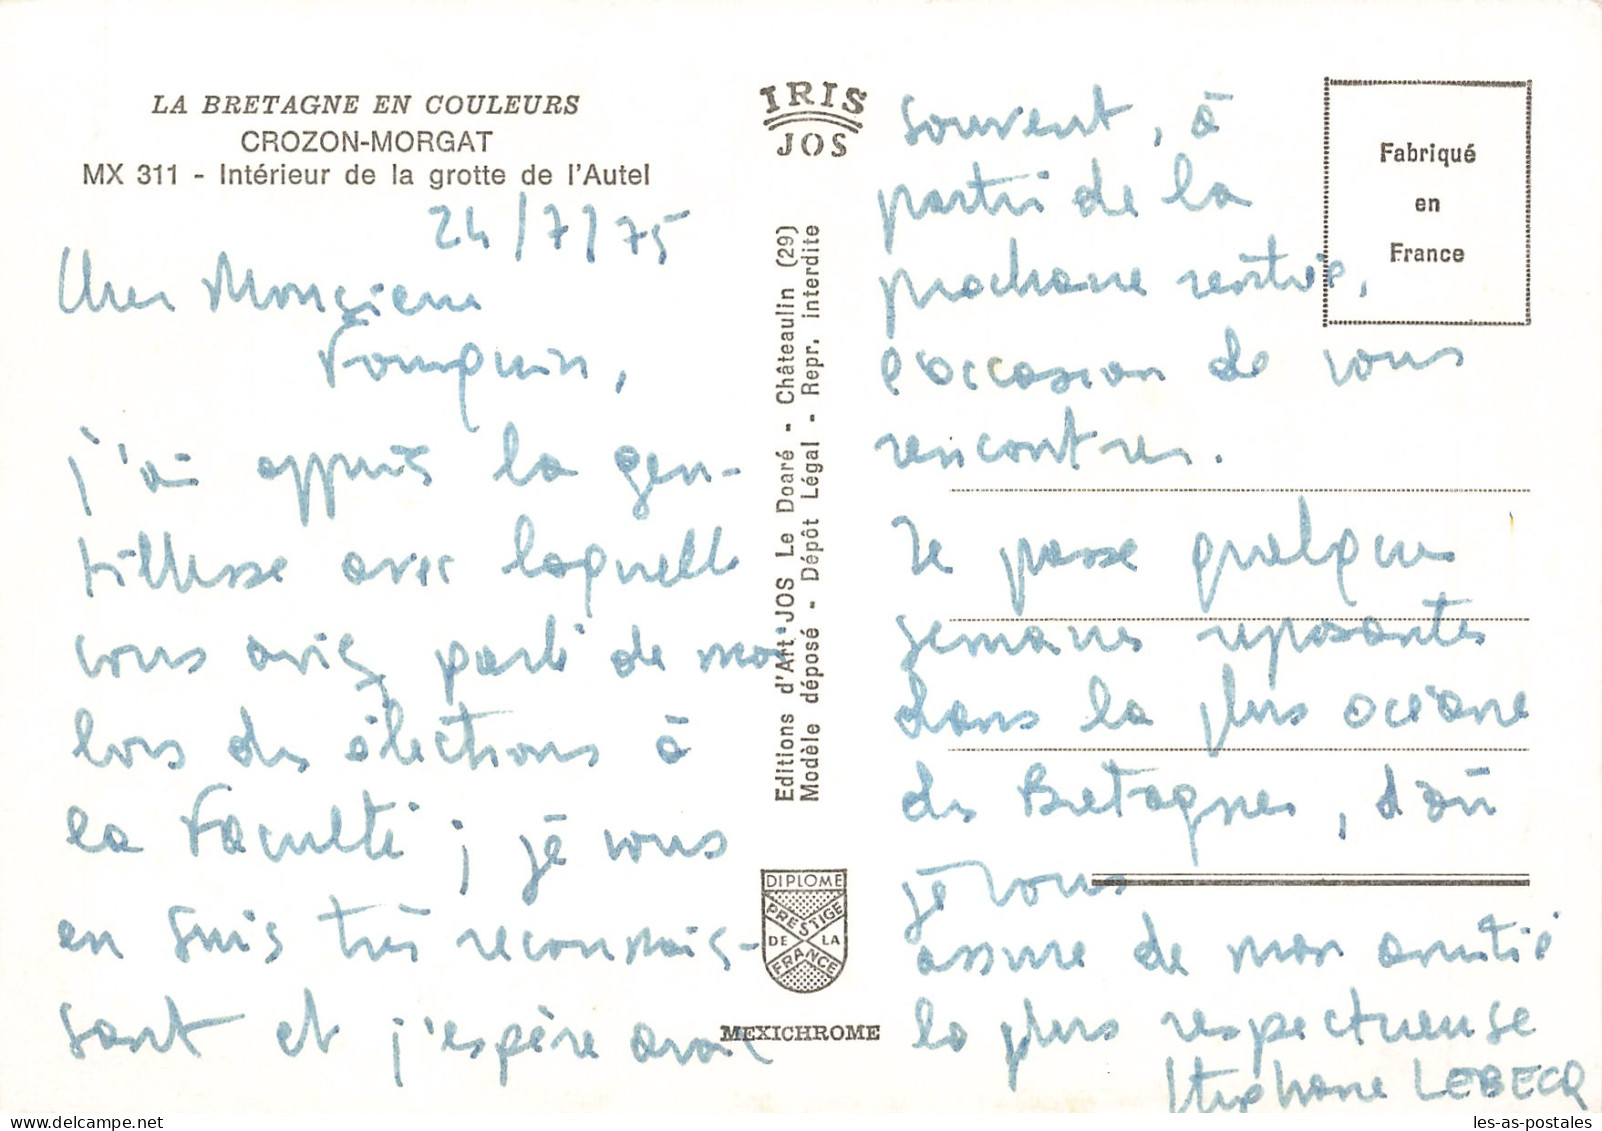 LA BRETAGNE EN COULEURS
CROZON-MORGAT
MX 311 - Intérieur de la grotte de l'Autel
24/7/75
Cher Monsieur
Fouquin,
j'ai appris la gen-
tillesse avec laquelle
vous aviez parlé de moi
lors des élections à
la Faculté ; je vous
en suis très reconnais-
sant et j'espère avoir
IRIS
JOS
Editions d'Art JOS Le Doaré - Châteaulin (29)
Modèle déposé - Dépôt Légal - Repr. interdite
DIPLOME
PRESTIGE
DE LA
FRANCE
MEXICHROME
souvent, à
partir de la
prochaine rentrée,
l'occasion de vous
rencontrer.
Je passe quelques
semaines reposantes
dans la plus océane
des Bretagnes, d'où
je vous
assure de mon amitié
la plus respectueuse
Stéphane LEBECQ
Fabriqué
en
France
les-as-postales